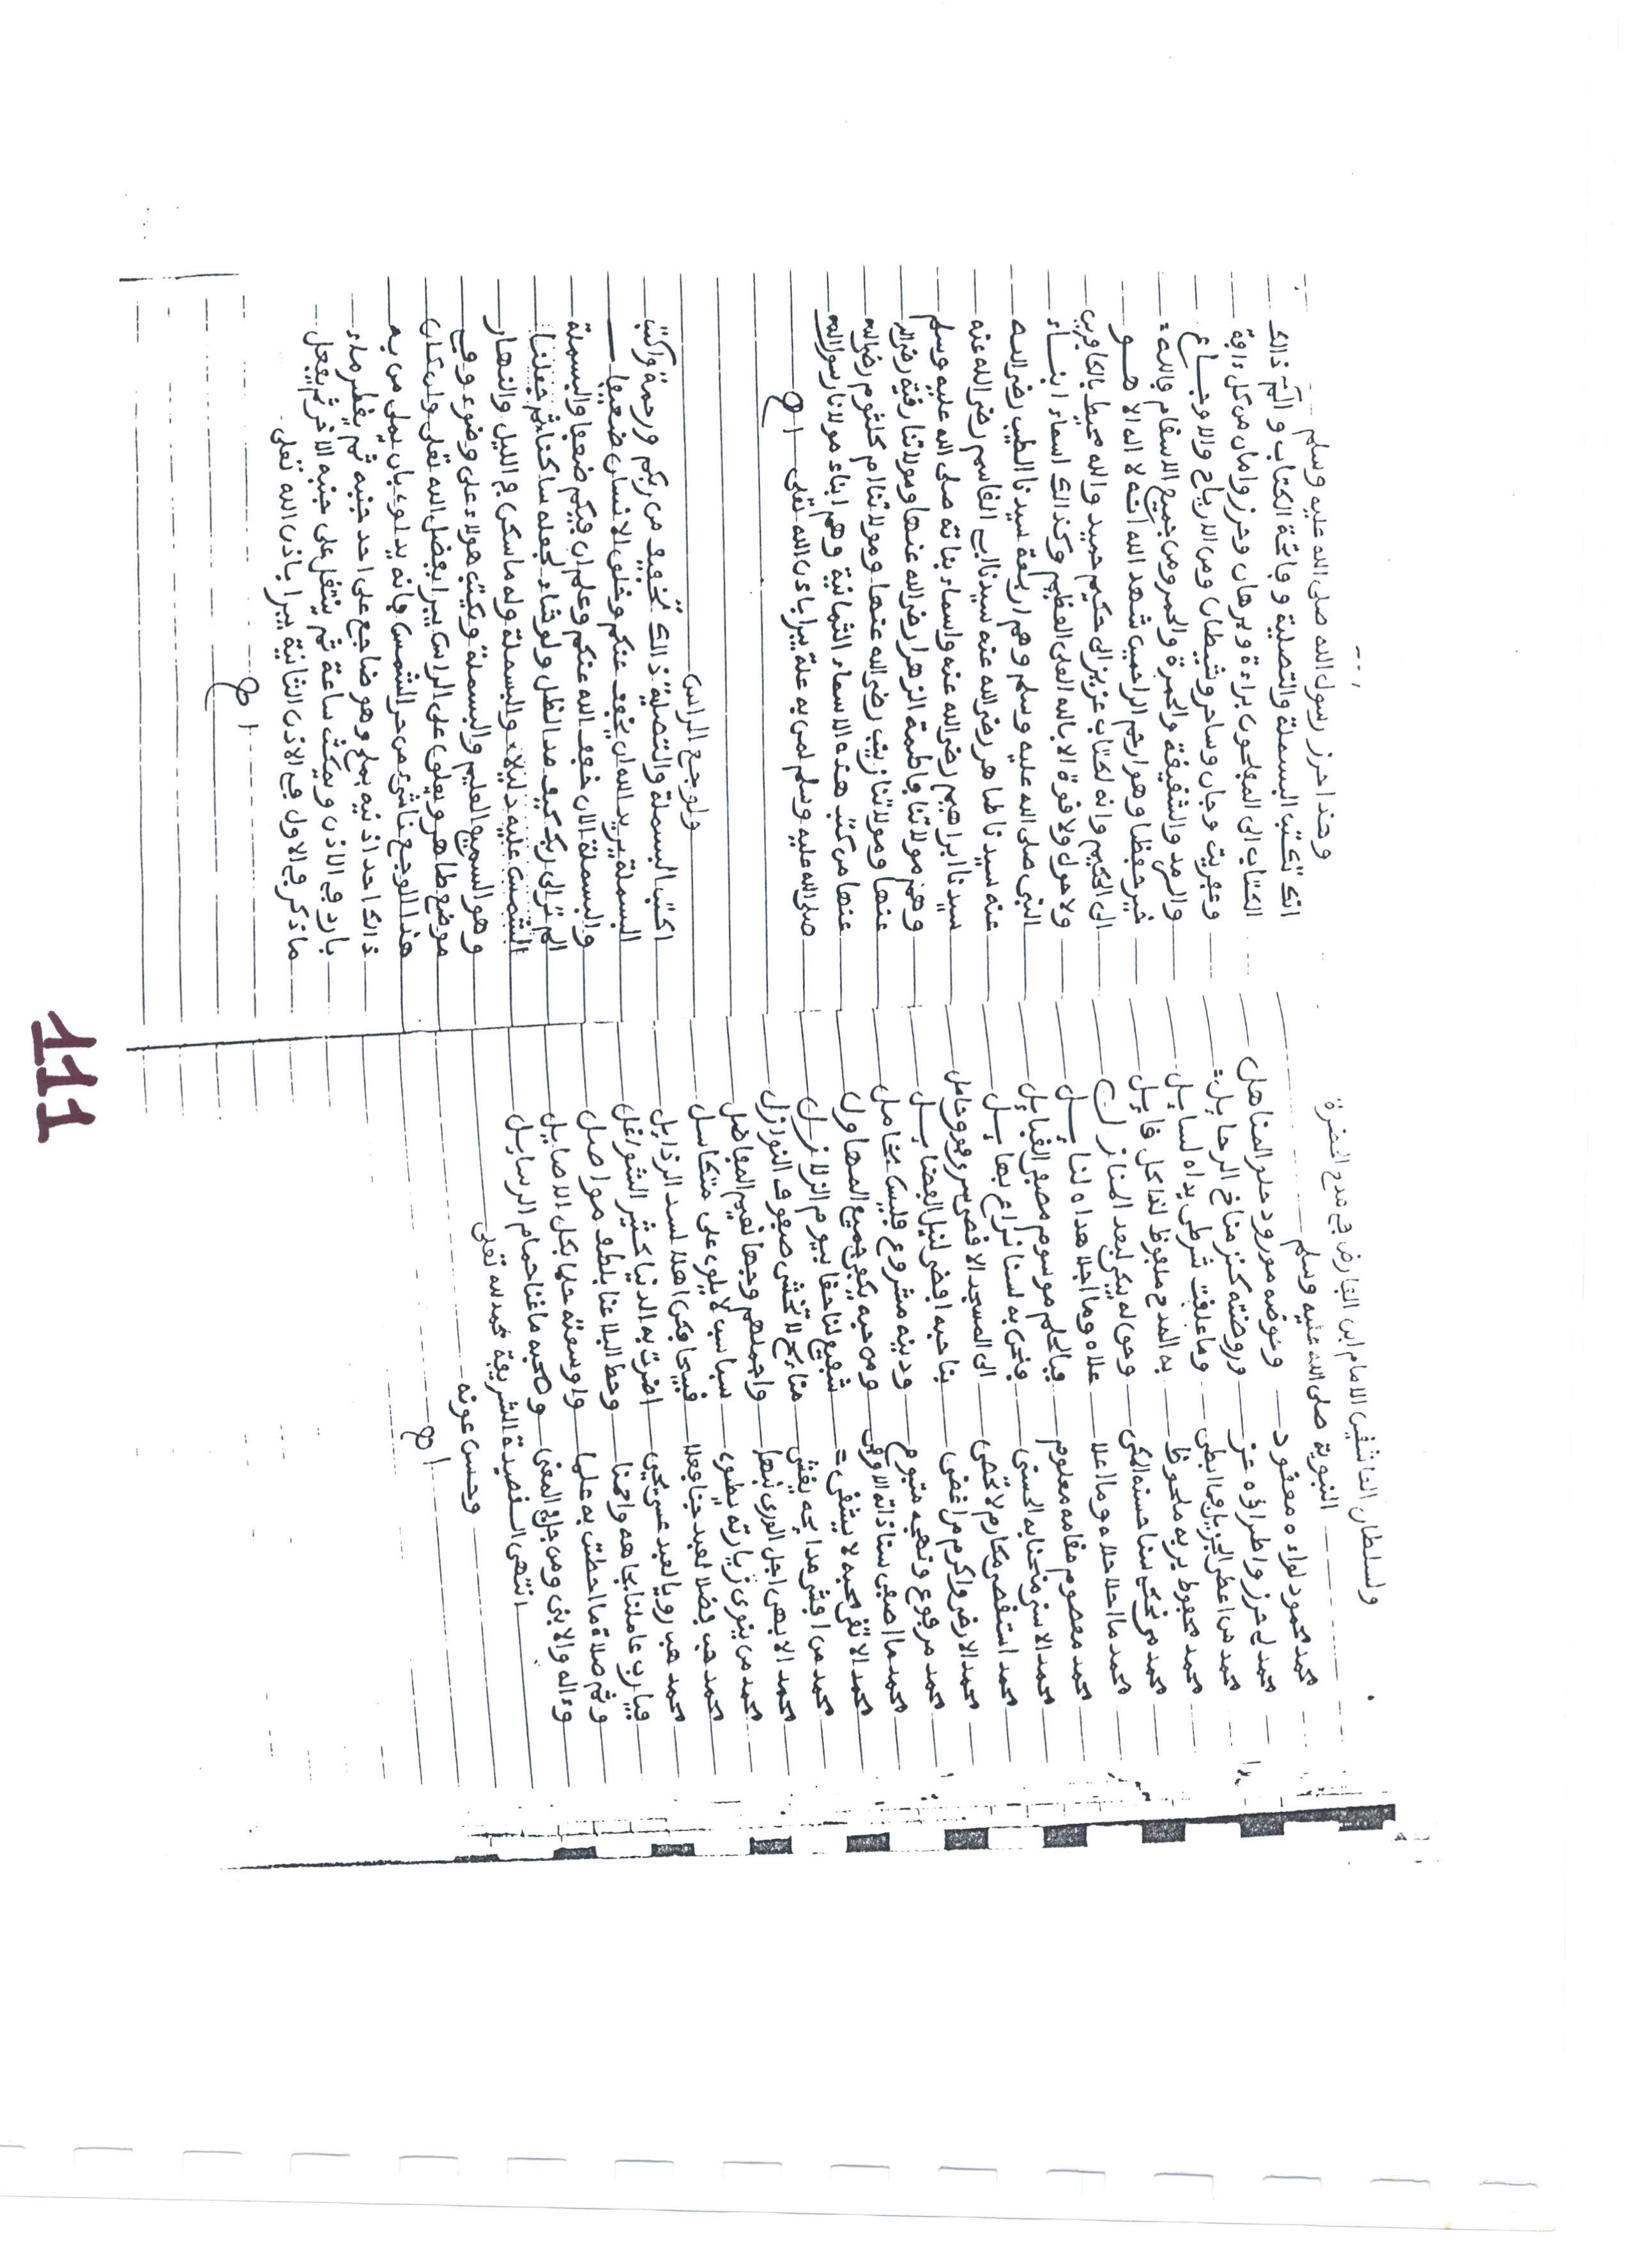 ولسلطان العاشقين الامام ابن الفارض في مدح الحضرة
النبوية صلى الله عليه وسلم
محمد محمود لواءه معقود وحوضه مورود حلو المناهل
محمد لي حرز واطراؤه عز وروضته كنز مناخ الرحايل
محمد من اعطى الجزيل بما ابطى وما علقت شرطى يداه لسايل
محمد محفوظ بربه ملحوظ به المدح ملفوظ لذا كل قايل
محمد من نحكي سنا حسنه المكي وحق له يبكي لبعد المنازل
محمد ما احلا حلاه وما اعلا علاه وما اجلا هداه لنايل
محمد معصوم مقامه معلوم فبالحلم موسوم مصفى القبايل
محمد الاسنى منحنا به الحسنى فنحن به لسنا نراع بهايل
محمد استقصى مكارم لا تحصى الى المسجد الاقصى سرى غير غافل
محمد الارضى واكرم من اغضى بنا حبه افضى لنيل الفضايل
محمد مرفوع ونهجه متبوع ودينه مشروع فليس بخامل
محمد ما اصفى سنا ذاته الاوفى ومن حبه يكفى جميع المهاول
محمد الاتقى محبه لا يشقى شفيع لنا حقا بيوم الزلازل
محمد من افشى مدايحه يغشى منائح لا تخشى صفوف النوازل
محمد الابهى اجل الورى نبها واجملهم وجها نعيم المفاضل
محمد من ينوى زيارته يطوى سباسب لا يلوى على متكاسل
محمد هب فضلا لعبد جنا فعلا قبيحا فكن اهلا لسد الرذايل
محمد هب رويا لعبد عسى يحيى اضرت به الدنيا كثير الشواغل
فيارب عاملنا بجاهه وامنا وحط البلا عنا بلطف مواصل
وثم صلاة ما احطت به علما واوسعته حلما بكل الاصايل
وءاله والابنى ومن جل في المعنى وصحبه ما غنا حمام الرسايل
انتهى القصيدة الشريفة بحمد الله تعلى
وحسن عونه
اه
وهذا حرز رسول الله صلى الله عليه وسلم
انك تكتب البسملة والتصلية وفاتحة الكتاب والم ذالك
الكتاب الى المفلحون براءة وبرهان وحرز وامان من كل ءافة
وعفريت وجان وساحر وشيطان ومن الارياح والاوجاع
والرمد والشقيقة والجمرة والحمر ومن جميع الاسقام فالله
خير حفظا وهو ارحم الراحمين شهد الله انه لا اله الا هو
الى الحكيم وانه لكتاب عزيز الى حكيم حميد والله محيط بالكافرين
ولا حول ولا قوة الا بالله العلى العظيم وكذالك اسماء ابناء
النبى صلى الله عليه وسلم وهم اربعة سيدنا الطيب رضى الله
عنه سيدنا طاهر رضى الله عنه سيدنا ابى القاسم رضى الله عنه
سيدنا ابراهيم رضى الله عنه واسماء بناته صلى الله عليه وسلم
وهم مولاتنا فاطمة الزهرا رضى الله عنها ومولاتنا رقية رضى الله
عنها ومولاتنا زينب رضى الله عنها ومولاتنا ام كلثوم رضى الله
عنها من كتب هذه الاسماء الثمانية وهم ابناء مولانا رسول الله
صلى الله عليه وسلم لمن به علة يبرا باذن الله تعلى اه
ولوجع الراس
اكتب البسملة والتصلية ذالك تخفيف من ربكم ورحمة واكتب
البسملة يريد الله ان يخفف عنكم وخلق الانسان ضعيفا
والبسملة الان خفف الله عنكم وعلم ان فيكم ضعفا والبسملة
الم تر الى ربك كيف مد الظل ولو شاء لجعله ساكنا ثم جعلنا
الشمس عليه دليلا والبسملة وله ما سكن في الليل والنهار
وهو السميع العليم والبسملة ويكتب هولاء على وضوء وفي
موضع طاهر ويعلق على الراس يبرا بفضل الله تعلى وان كان
هذا الوجع ناشئ من حر الشمس فانه يداوى بان يملى من به
ذالك احد اذنيه بملح وهو ضاجع على احد جنبه ثم يقطر ماء
بارد في الاذن ويمكث ساعة ثم ينتقل على جنبه الاخر ثم يفعل
ما ذكر في الاول في الاذن الثانية يبرا باذن الله تعلى
اه
111